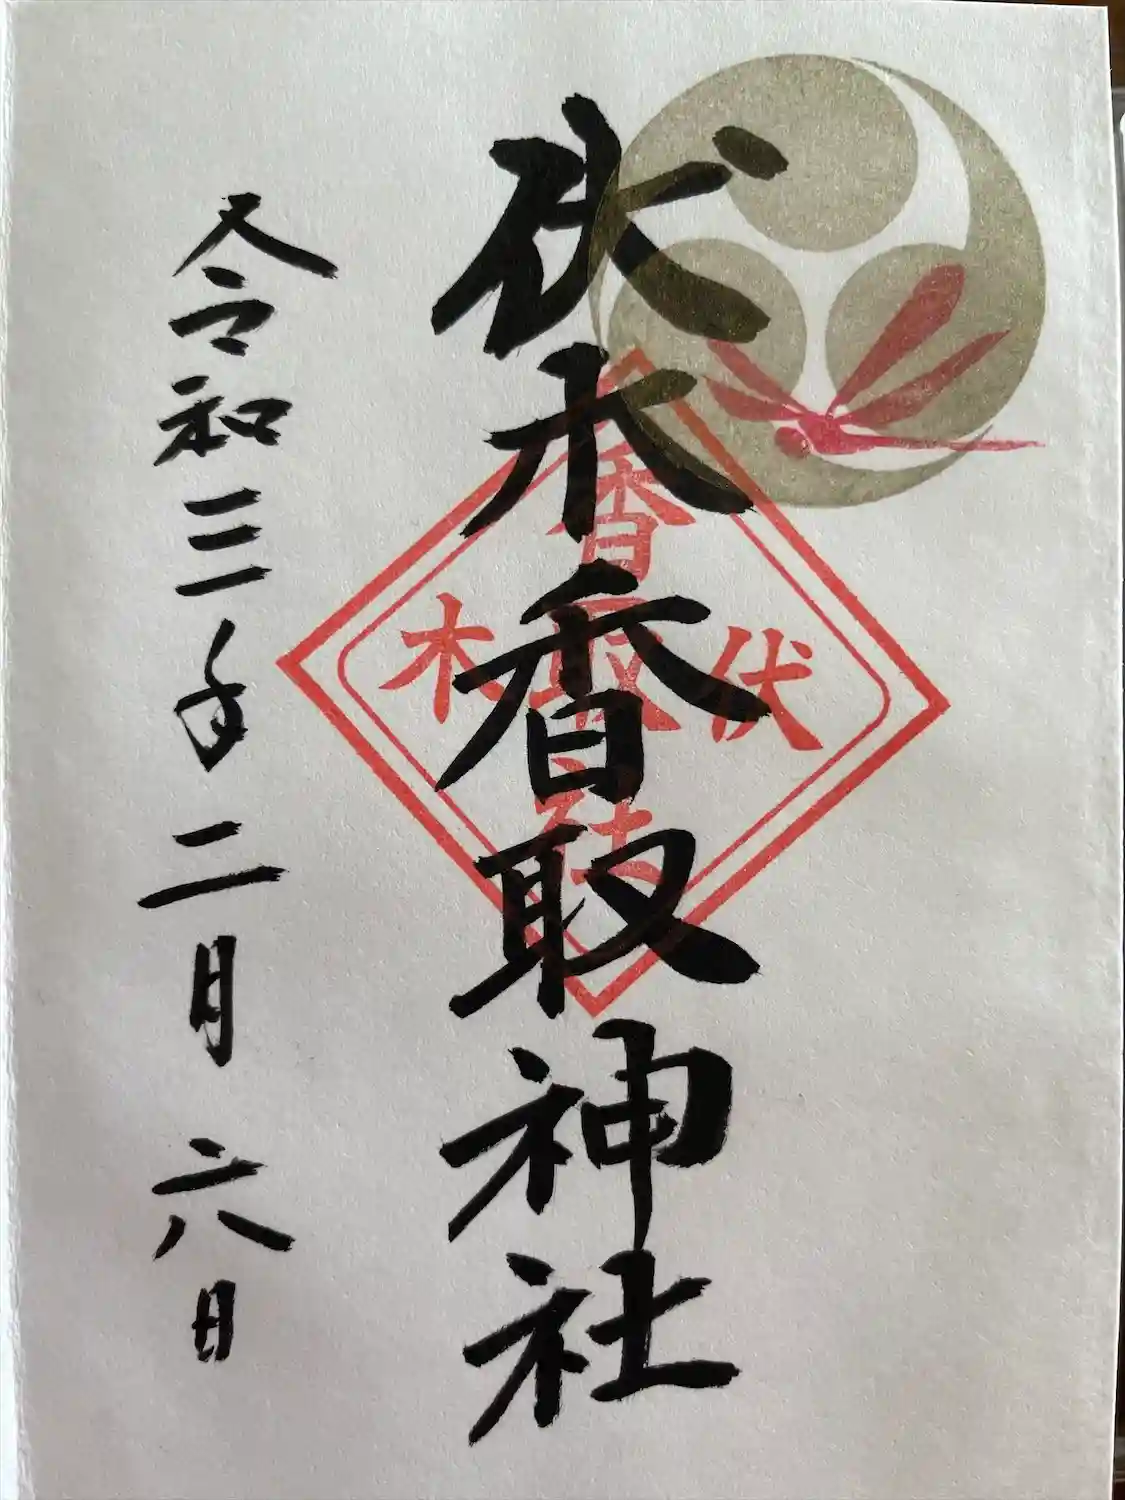 伏木香取神社
伏木
香取社
令和三年二月六日